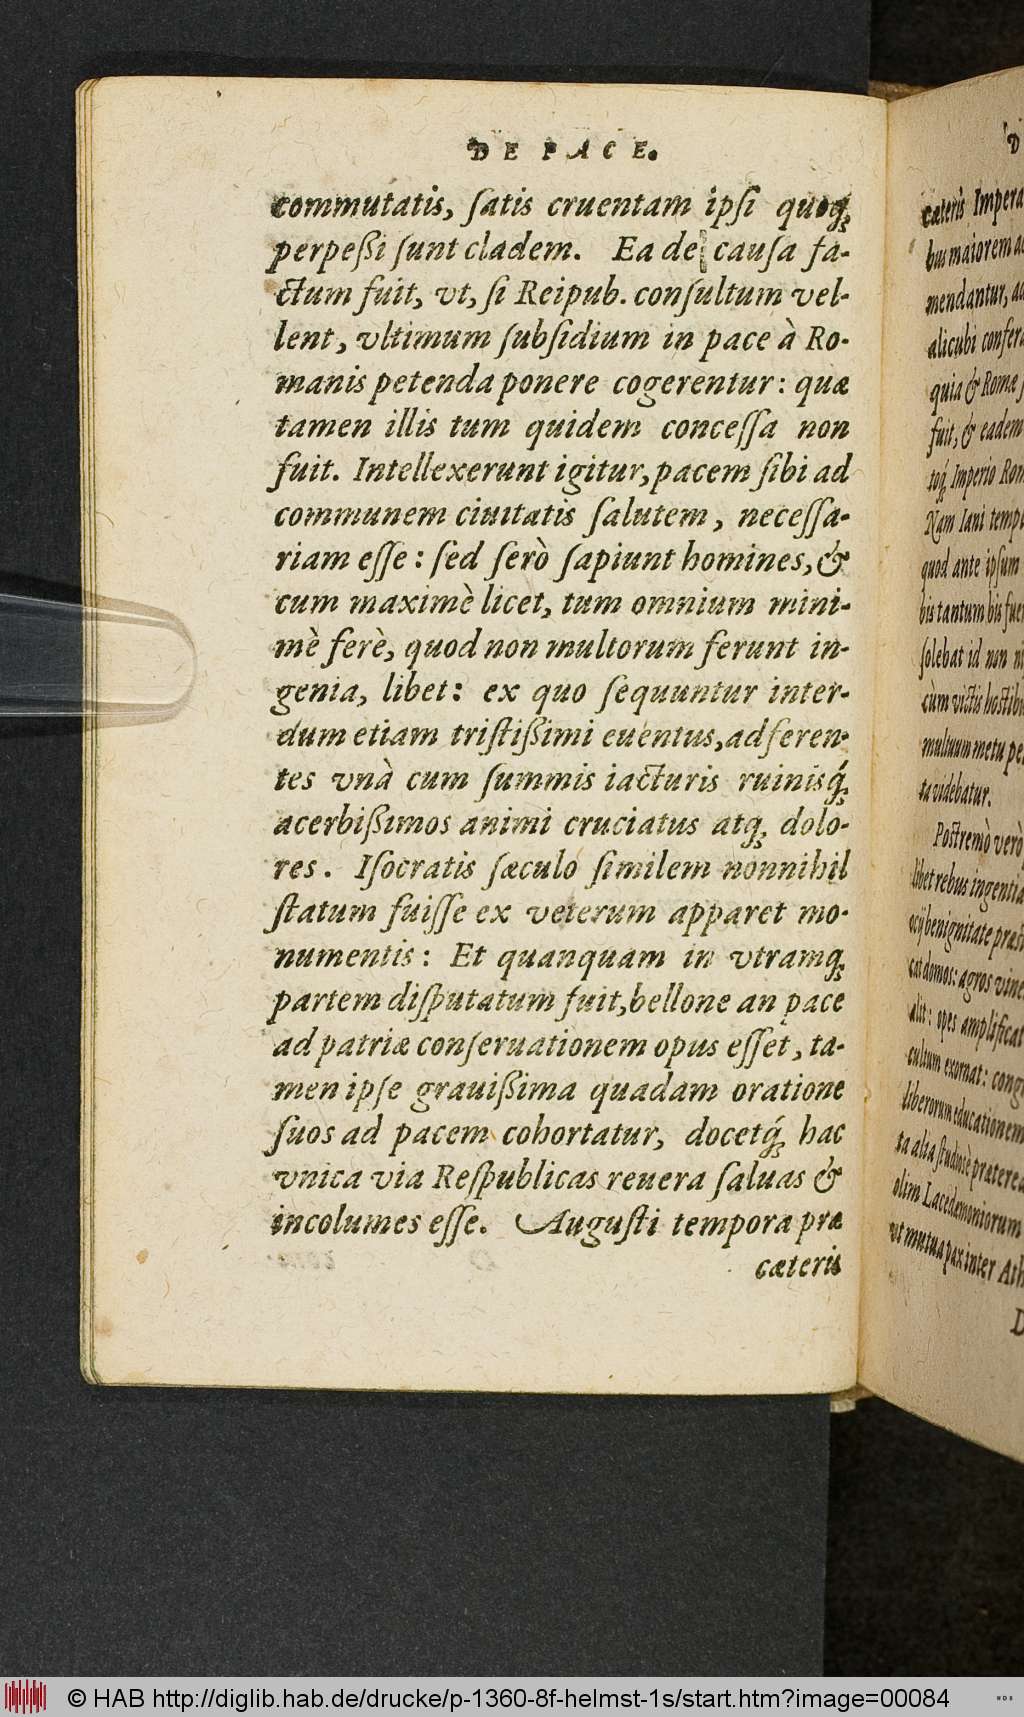 DE PACE.
commutatis, ſatis cruentam ipſi quoq́;
perpeßi ſunt cladem. Ea de cauſa fa-
ctum fuit, vt, ſi Reipub. conſultum vel-
lent, vltimum ſubſidium in pace à Ro-
manis petenda ponere cogerentur: quæ
tamen illis tum quidem conceſſa non
fuit. Intellexerunt igitur, pacem ſibi ad
communem ciuitatis ſalutem, neceſſa-
riam eſſe: ſed ſerò ſapiunt homines, &
cum maximè licet, tum omnium mini-
mè ferè, quod non multorum ferunt in-
genia, libet: ex quo ſequuntur inter-
dum etiam triſtißimi euentus, adferen-
tes vnà cum ſummis iacturis ruinisq́;
acerbißimos animi cruciatus atq; dolo-
res. Iſocratis ſæculo ſimilem nonnihil
ſtatum fuiſſe ex veterum apparet mo-
numentis: Et quanquam in vtramq;
partem diſputatum fuit, bellone an pace
ad patriæ conſeruationem opus eſſet, ta-
men ipſe grauißima quadam oratione
ſuos ad pacem cohortatur, docetq́; hac
vnica via Reſpublicas reuera ſaluas &
incolumes eſſe. Auguſti tempora præ
cæteris
D
cæteris Impera
bus maiorem
mendantur,
alicubi confer
quia & Romæ
fuit, & eadem
toq́; Imperio Rom
Nam Iani temp
quod ante ipſum
bis tantum bis fue
ſolebat id non
cùm victis hoſtibu
multuum metu pe
ta videbatur.
Poſtremò verò
libet rebus ingentia
ocij benignitate præſt
cat domos: agros vine
alit: opes amplificat
cultum exornat: cong
liberorum educationem
ta alia ſtudioſè præterea
olim Lacedæmoniorum
vt mutua pax inter Ath
D
© HAB http://diglib.hab.de/drucke/p-1360-8f-helmst-1s/start.htm?image=00084